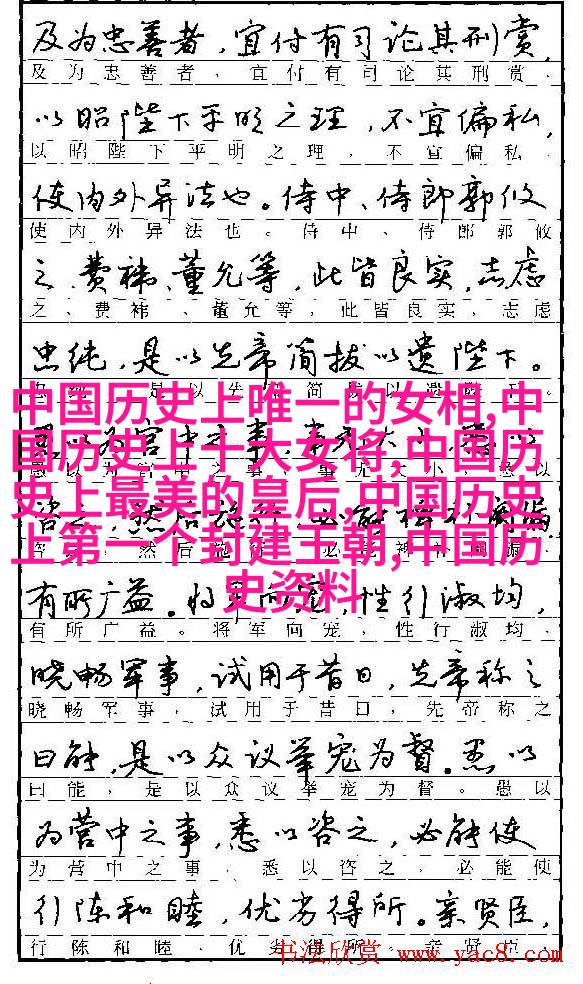 及为忠善者,宜付有司论其刑赏,
及为忠善者、宜付有司论其刑赏.
以昭陛下平明之理,不宜偏私,
以昭陛下平明之理、不宜偏私.
使内外异法也。侍中、侍郎郭攸
使内外异法也。侍中、侍郎郭攸
之、费祎、董允等,此皆良实,志虑
之、费祎、董允等,此皆良实,志虑
忠纯,是以先帝简拔以遗陛下。
中国历史上唯一的女相,中
国历史上十大女将,中国历
史上最美的皇后,中国历史
上第一个封建王朝,中国历
史资料
有所广益。将军向宠,性行淑均,
有所广益。将军向宠、性行淑均、
晓畅军事,试用于昔日,先帝称之
晓畅军事,试用于昔日,先帝称之
曰能,是以众议举宠为督。愚以
曰能,是以众议举宠为督。愚以
为营中之事,悉以咨之,必能使
为营中之事、悉以咨之,必能使
行陈和睦,优劣得所。亲贤臣,
行陈和睦、优劣得所。亲贤臣,
书法欣赏 www.yac8.com